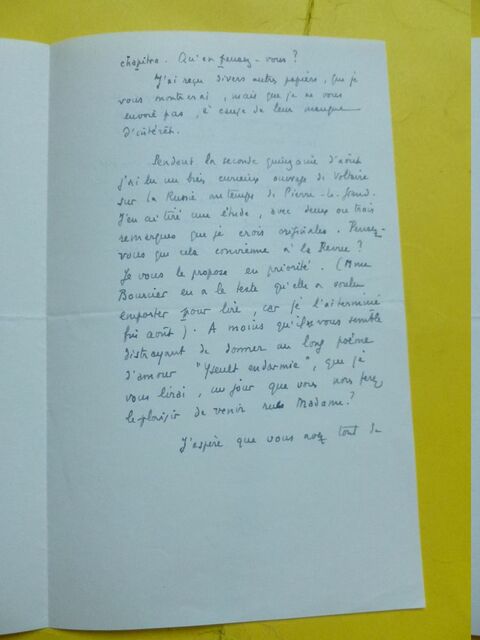 chapitre. Qu'en pensez-vous ?
J'ai reçu divers autres papiers, que je
vous montrerai, mais que je ne vous
envoie pas, à cause de leur manque
d'intérêt.
Pendant la seconde quinzaine d'août
j'ai lu un très curieux ouvrage de Voltaire
sur la Russie au temps de Pierre-le-Grand.
J'en ai tiré une étude, avec deux ou trois
remarques que je crois originales. Pensez-
vous que cela convienne à la Revue ?
Je vous le propose en priorité. (Mme
Bourcier en a le texte qu'elle a voulu
emporter pour lire, car je l'ai terminé
fin août). A moins qu'il vous semble
distrayant de donner un long poème
d'amour "Yseult endormie", que je
vous lirai, un jour que vous nous ferez
le plaisir de venir rue Madame ?
J'espère que vous avez tout de